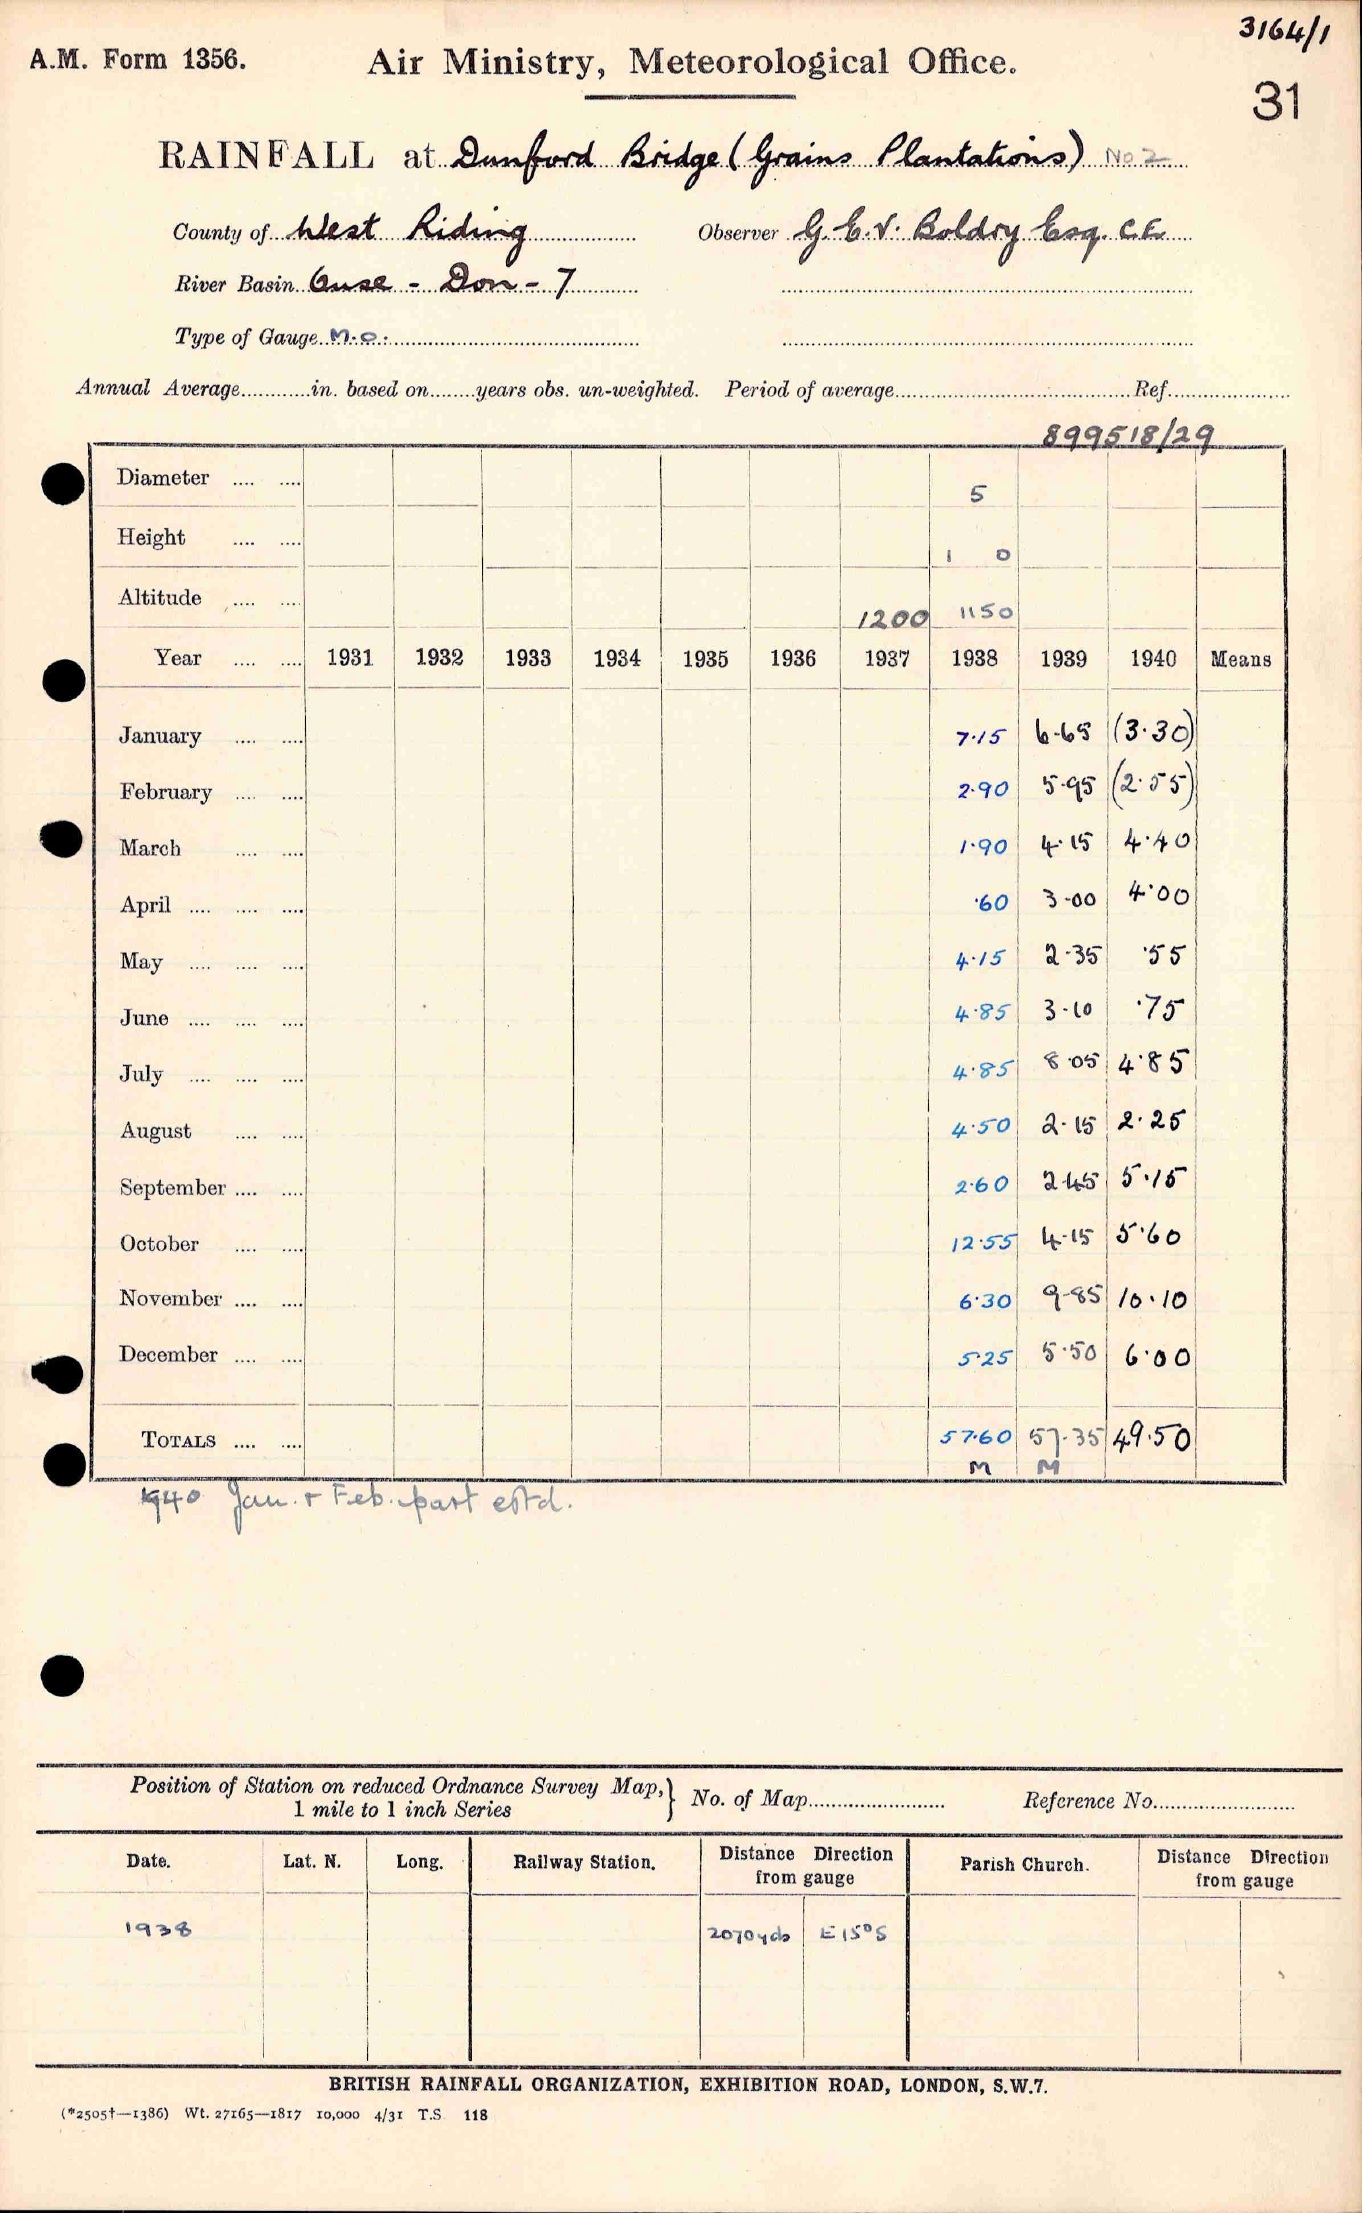 3164/1
A.M. Form 1356. Air Ministry, Meteorological Office.
31
RAINFALL at Dunford Bridge (Grains Plantations) No 2
County of West Riding Observer G. E. V. Boldry Esq. C.E.
River Basin Ouse - Don - 7
Type of Gauge M.O.
Annual Average............in. based on........years obs. un-weighted. Period of average............Ref............
899518/29
Diameter .... .... 5
Height .... .... 1 0
Altitude .... .... 1200 1150
Year .... .... 1931 1932 1933 1934 1935 1936 1937 1938 1939 1940 Means
January .... .... 7.15 6.65 (3.30)
February .... .... 2.90 5.95 (2.55)
March .... .... 1.90 4.15 4.40
April .... .... .... .60 3.00 4.00
May .... .... .... 4.15 2.35 .55
June .... .... .... 4.85 3.10 .75
July .... .... .... 4.85 8.05 4.85
August .... .... 4.50 2.15 2.25
September .... .... 2.60 2.45 5.15
October .... .... 12.55 4.15 5.60
November .... .... 6.30 9.85 10.10
December .... .... 5.25 5.50 6.00
TOTALS .... .... 57.60 57.35 49.50
M M
1940 Jan. & Feb. part estd.
Position of Station on reduced Ordnance Survey Map, } No. of Map............ Reference No............
1 mile to 1 inch Series
Date. Lat. N. Long. Railway Station. Distance Direction from gauge Parish Church. Distance Direction from gauge
1938 2070 yds E 15° S
BRITISH RAINFALL ORGANIZATION, EXHIBITION ROAD, LONDON, S.W.7.
(*2505†—1386) Wt. 27165—1817 10,000 4/31 T.S. 118